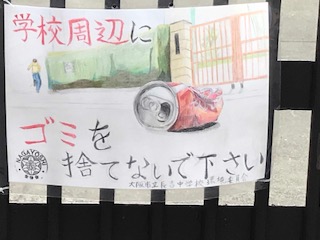 学校周辺に
ゴミを
捨てないで下さい
NAGAYOSHI
大阪市立長吉中学校 環境委員会